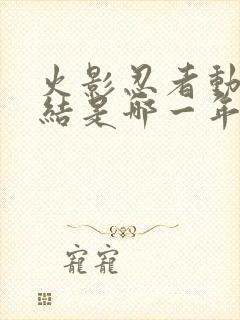 火影忍者動
結是哪一年
寵寵